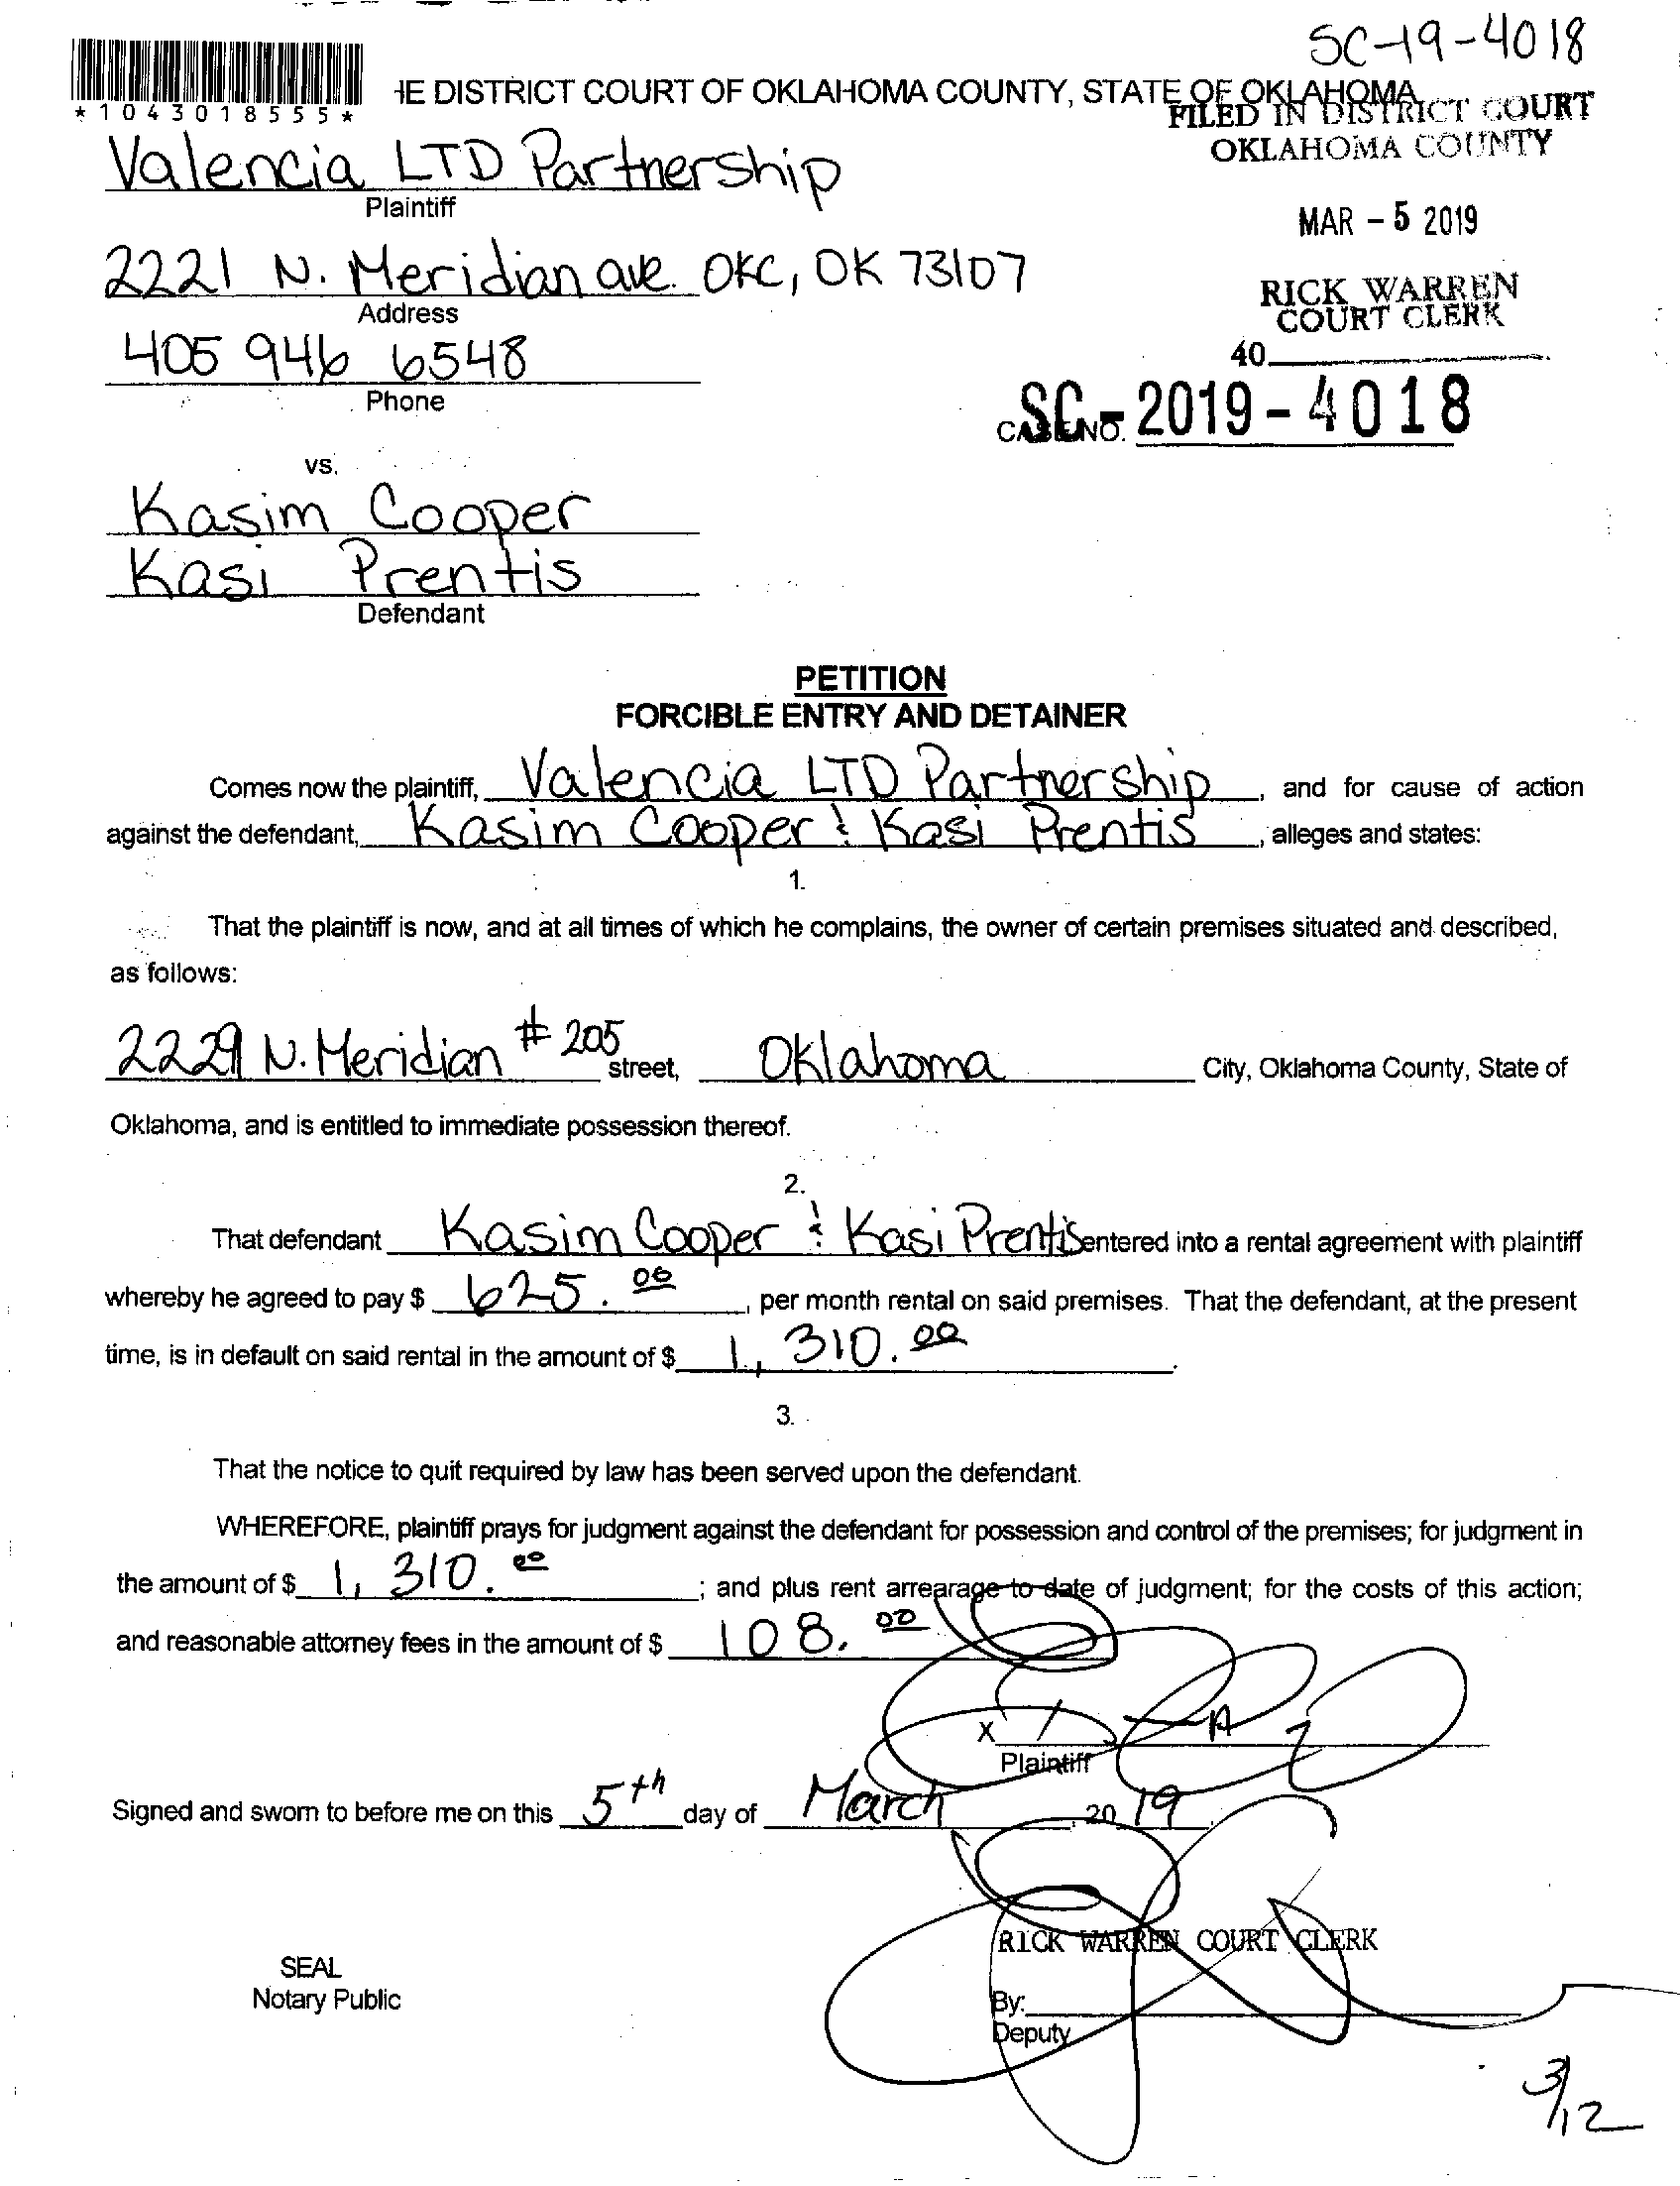 SC-19-4018
*1043018555*
HE DISTRICT COURT OF OKLAHOMA COUNTY, STATE OF OKLAHOMA
FILED IN DISTRICT COURT
OKLAHOMA COUNTY
Valencia LTD Partnership
Plaintiff
MAR - 5 2019
2221 N. Meridian ave. OKC, OK 73107
Address
RICK WARREN
COURT CLERK
405 946 6548
Phone
40
CASE NO. SC-2019-4018
vs.
Kasim Cooper
Kasi Prentis
Defendant
PETITION
FORCIBLE ENTRY AND DETAINER
Comes now the plaintiff, Valencia LTD Partnership, and for cause of action
against the defendant, Kasim Cooper & Kasi Prentis, alleges and states:
1.
That the plaintiff is now, and at all times of which he complains, the owner of certain premises situated and described,
as follows:
2229 N. Meridian # 205 street, Oklahoma City, Oklahoma County, State of
Oklahoma, and is entitled to immediate possession thereof.
2.
That defendant Kasim Cooper & Kasi Prentis entered into a rental agreement with plaintiff
whereby he agreed to pay $ 625.00, per month rental on said premises. That the defendant, at the present
time, is in default on said rental in the amount of $ 1,310.00.
3.
That the notice to quit required by law has been served upon the defendant.
WHEREFORE, plaintiff prays for judgment against the defendant for possession and control of the premises; for judgment in
the amount of $ 1,310.00; and plus rent arrearage to date of judgment; for the costs of this action;
and reasonable attorney fees in the amount of $ 108.00
X
Plaintiff
Signed and sworn to before me on this 5th day of March, 2019.
RICK WARREN COURT CLERK
SEAL
Notary Public
By:
Deputy
3/12